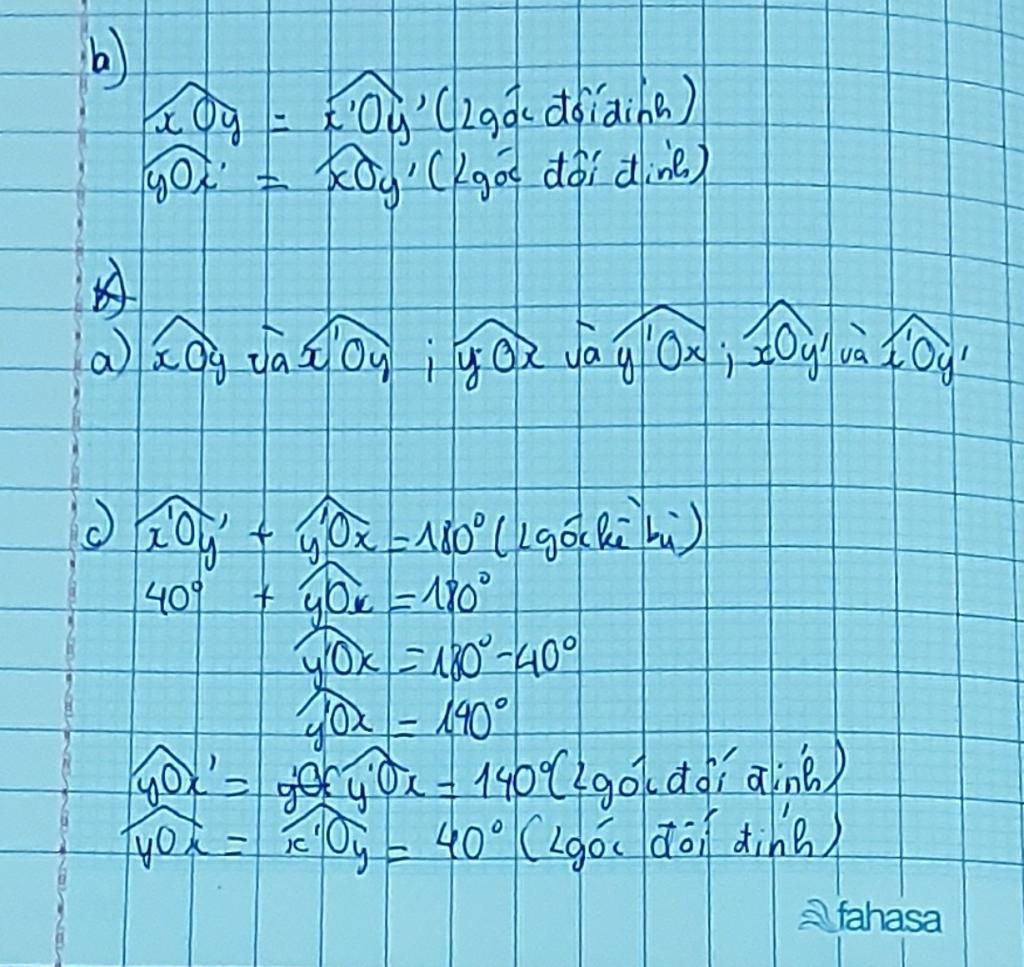 b)
xOy = x'Oy' (2 góc đối đỉnh)
yOx' = xOy' (2 góc đối đỉnh)
a) xOy và x'Oy ; yOx và y'Ox ; xOy' và x'Oy'
c) x'Oy' + y'Ox = 180° (2 góc kề bù)
40° + y'Ox = 180°
y'Ox = 180° - 40°
y'Ox = 140°
yOx' = y'Ox = 140° (2 góc đối đỉnh)
yOx = x'Oy = 40° (2 góc đối đỉnh)
fahasa